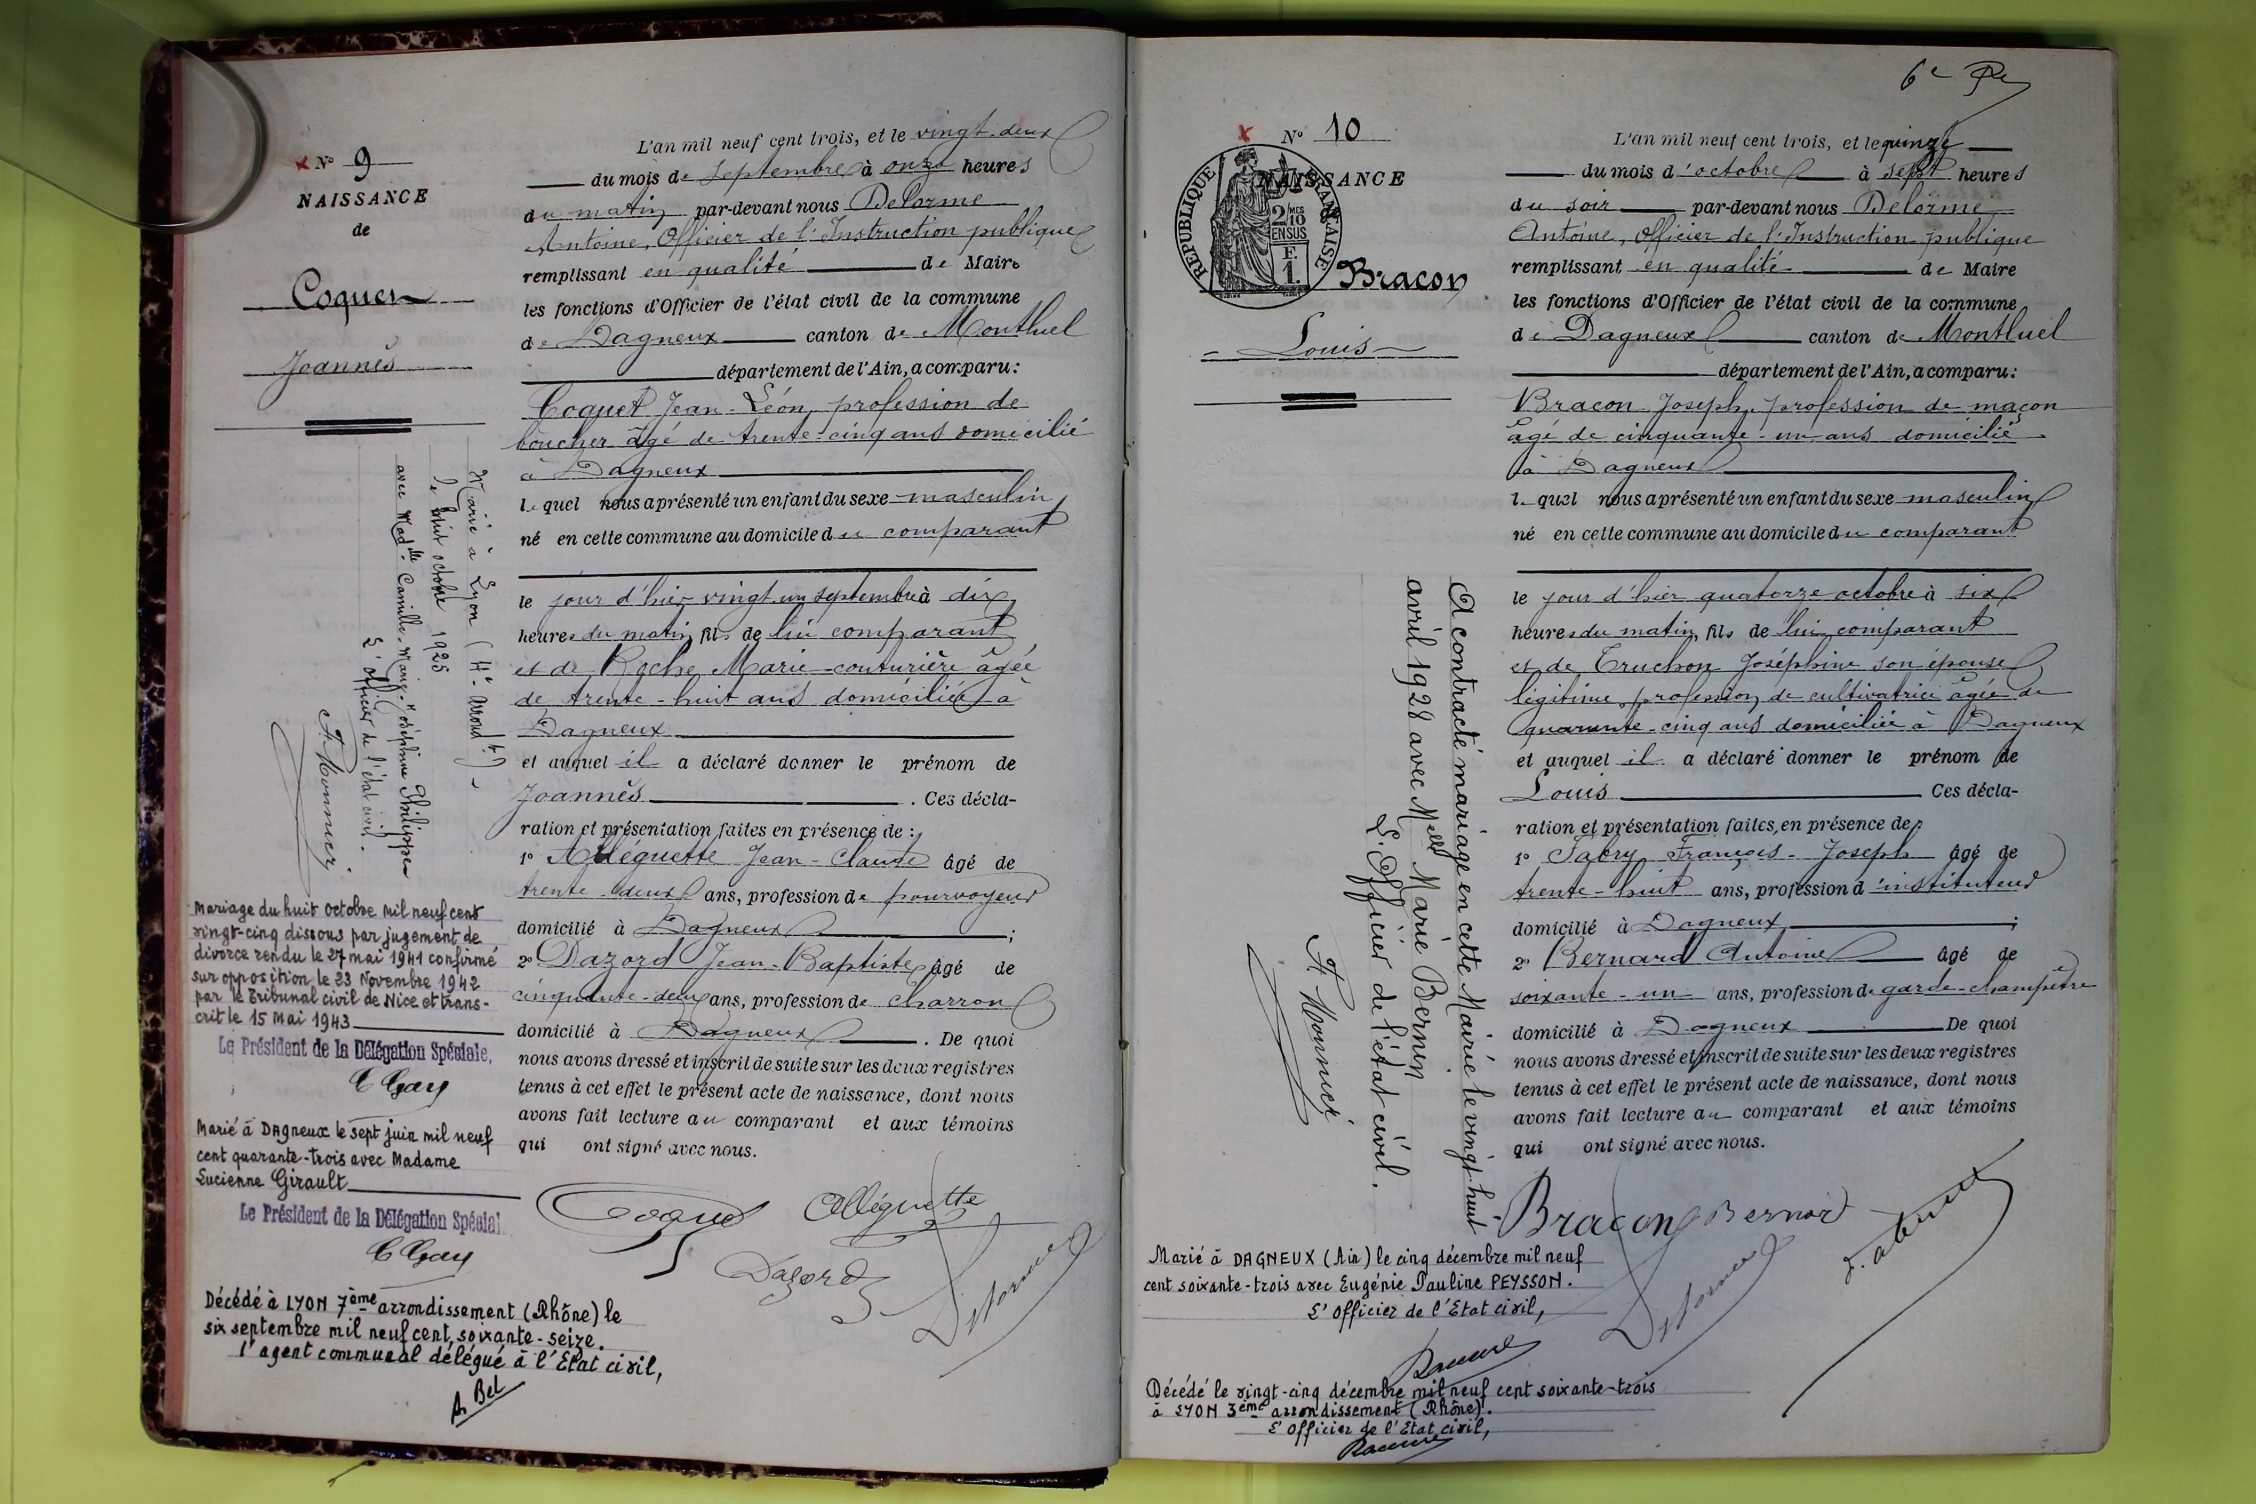 N° 9
NAISSANCE
de
Coquet
Joannès
L'an mil neuf cent trois, et le vingt-deux
du mois de septembre à onze heures
du matin par-devant nous Delorme
Antoine, Officier de l'Instruction publique
remplissant en qualité de Maire
les fonctions d'Officier de l'état civil de la commune
de Dagneux canton de Montluel
département de l'Ain, a comparu:
Coquet Jean-Léon, profession de
boucher âgé de trente-cinq ans domicilié
à Dagneux
lequel nous a présenté un enfant du sexe masculin
né en cette commune au domicile du comparant
le jour d'hier vingt un septembre à dix
heures du matin, fils de lui comparant
et de Roche Marie couturière âgée
de trente-huit ans domiciliée à
Dagneux
et auquel il a déclaré donner le prénom de
Joannès. Ces décla-
ration et présentation faites en présence de:
1° Alléguette Jean-Claude âgé de
trente-deux ans, profession de pourvoyeur
domicilié à Dagneux;
2° Dazord Jean-Baptiste âgé de
cinquante-deux ans, profession de charron
domicilié à Dagneux. De quoi
nous avons dressé et inscrit de suite sur les deux registres
tenus à cet effet le présent acte de naissance, dont nous
avons fait lecture au comparant et aux témoins
qui ont signé avec nous.
Coquet
Alléguette
Dazord
Delorme
Marié à Lyon (4e arrondt)
le huit octobre 1925
avec Madelle Camille-Marie-Joséphine Philippe
L'officier de l'état civil.
F. Monnier
Mariage du huit octobre mil neuf cent
vingt-cinq dissous par jugement de
divorce rendu le 27 mai 1941 confirmé
sur opposition le 23 Novembre 1942
par le Tribunal civil de Nice et trans-
crit le 15 mai 1943
Le Président de la Délégation Spéciale,
C Gay
Marié à Dagneux le sept juin mil neuf
cent quarante-trois avec Madame
Lucienne Girault
Le Président de la Délégation Spécial
C Gay
Décédé à LYON 7ème arrondissement (Rhône) le
six septembre mil neuf cent soixante-seize.
l'agent communal délégué à l'Etat civil,
A. Bel
6e
N° 10
NAISSANCE
REPUBLIQUE FRANÇAISE
2/10 MES
EN SUS
F.
1.
Bracon
Louis
L'an mil neuf cent trois, et le quinze
du mois d'octobre à sept heures
du soir par-devant nous Delorme
Antoine, Officier de l'Instruction publique
remplissant en qualité de Maire
les fonctions d'Officier de l'état civil de la commune
de Dagneux canton de Montluel
département de l'Ain, a comparu:
Bracon Joseph, profession de maçon
âgé de cinquante-un ans domicilié
à Dagneux
lequel nous a présenté un enfant du sexe masculin
né en cette commune au domicile du comparant
le jour d'hier quatorze octobre à six
heures du matin, fils de lui comparant
et de Truchon Joséphine son épouse
légitime, profession de cultivatrice âgée de
quarante-cinq ans domiciliée à Dagneux
et auquel il a déclaré donner le prénom de
Louis Ces décla-
ration et présentation faites, en présence de:
1° Fabry François-Joseph âgé de
trente-huit ans, profession d'instituteur
domicilié à Dagneux;
2° Bernard Antoine âgé de
soixante-un ans, profession de garde-champêtre
domicilié à Dagneux De quoi
nous avons dressé et inscrit de suite sur les deux registres
tenus à cet effet le présent acte de naissance, dont nous
avons fait lecture au comparant et aux témoins
qui ont signé avec nous.
Bracon
Bernard
Delorme
A contracté mariage en cette Mairie le vingt-huit
avril 1928 avec Melle Marie Bernin
L'Officier de l'état civil.
F. Monnier
Marié à DAGNEUX (Ain) le cinq décembre mil neuf
cent soixante-trois avec Eugénie Pauline PEYSSON.
L'Officier de l'Etat civil,
Décédé le vingt-cinq décembre mil neuf cent soixante-trois
à LYON 3ème arrondissement (Rhône).
L'Officier de l'Etat civil,